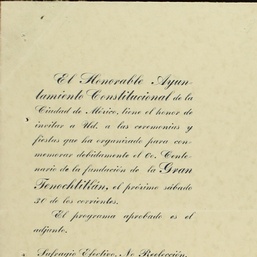 El Honorable Ayun-
tamiento Constitucional de la
Ciudad de México, tiene el honor de
invitar a Ud. a las ceremonias y
fiestas que ha organizado para con-
memorar debidamente el 6o. Cente-
nario de la fundación de la Gran
Tenochtitlán, el próximo sábado
30 de los corrientes.
El programa aprobado es el
adjunto.
Sufragio Efectivo. No Reelección.